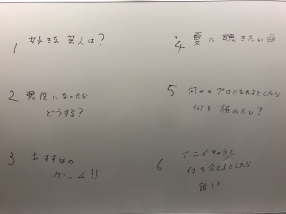 1 好きな芸人は?
2 男性になったら
どうする?
3 おすすめの
ゲーム!!
4 夏に聴きたい曲
5 何かのプロになれるとしたら
何を極めたい?
6 アニメキャラと
付き合えるとしたら
誰!?